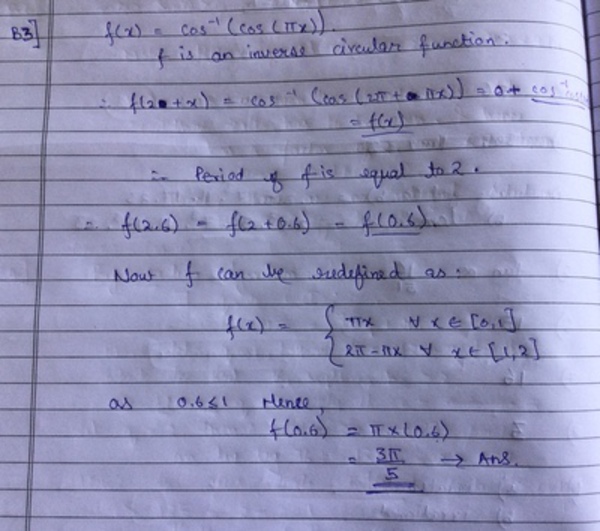 B3] f(x) = cos⁻¹(cos(πx)).
f is an inverse circular function.
∴ f(2+x) = cos⁻¹(cos(2π+πx)) = 0+ cos⁻¹
= f(x)
∴ Period of f is equal to 2.
∴ f(2.6) = f(2+0.6) = f(0.6).
Now f can be redefined as:
f(x) = { πx ∀ x ∈ [0,1]
{ 2π-πx ∀ x ∈ [1,2]
as 0.6≤1 Hence,
f(0.6) = π×(0.6)
= 3π/5 → Ans.